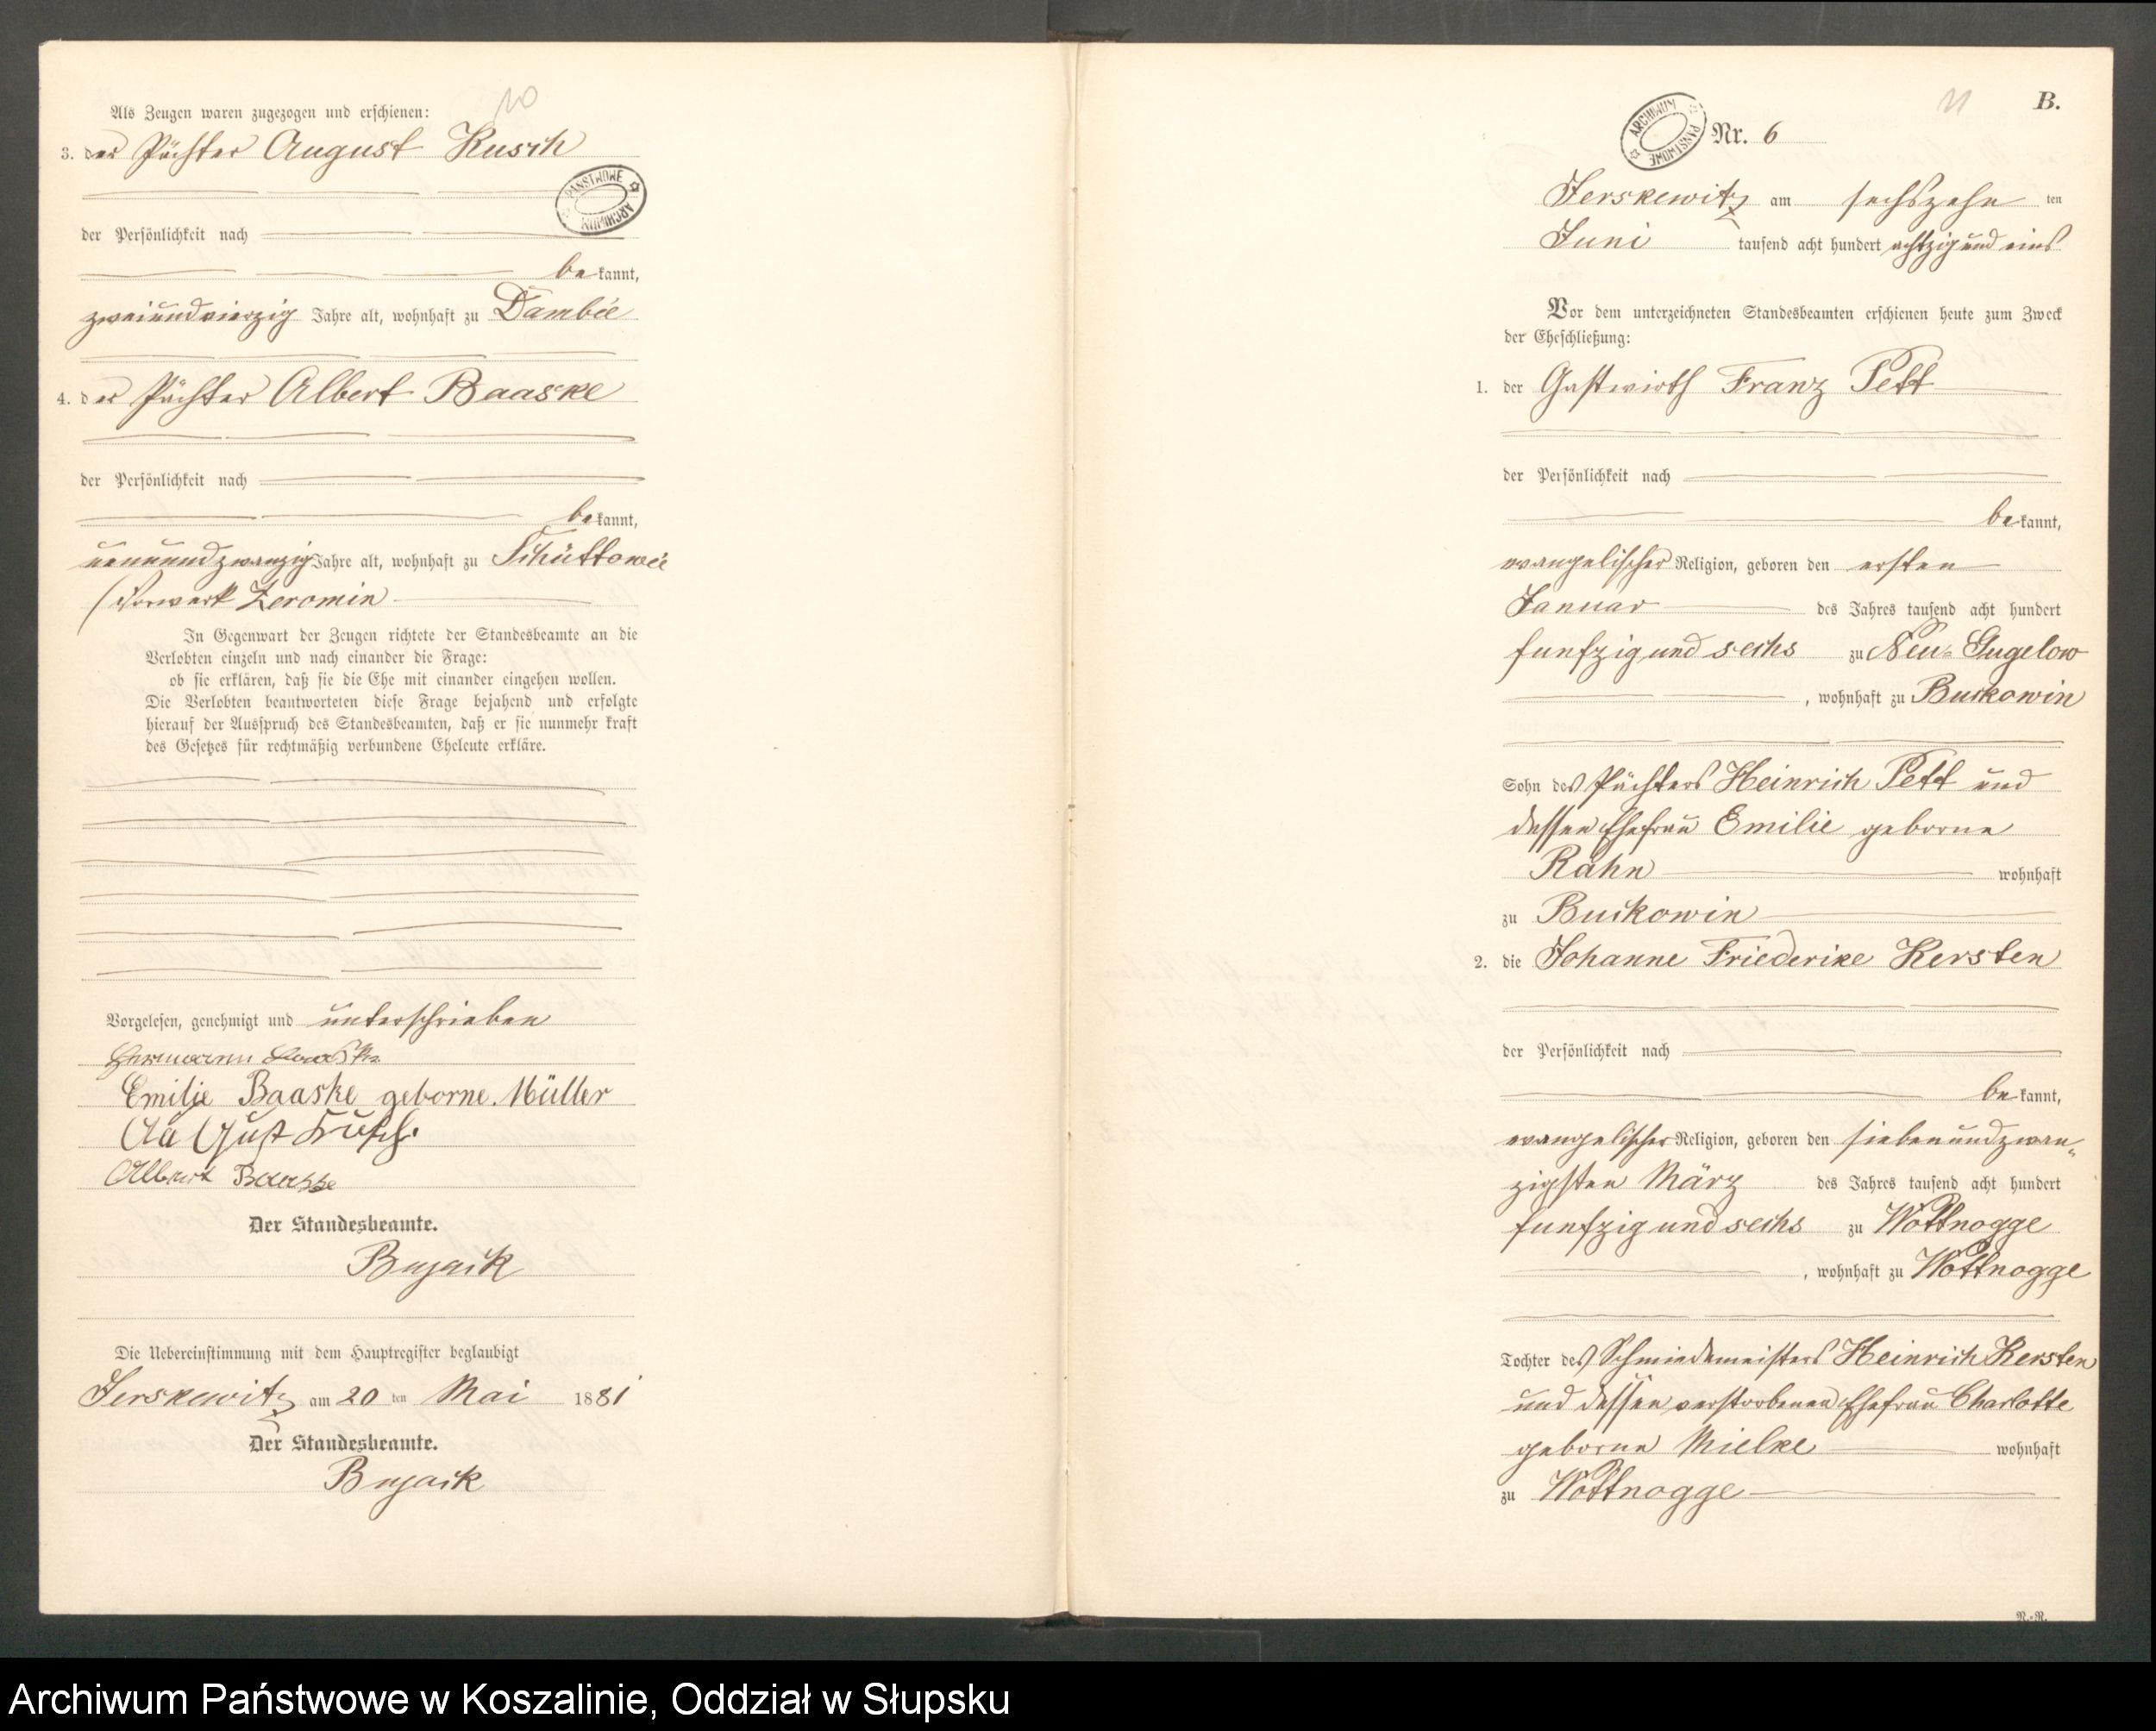 10
Als Zeugen waren zugezogen und erschienen:
3. der Pächter August Kusch
PAŃSTWOWE ARCHIWUM
der Persönlichkeit nach
bekannt,
zweiundvierzig Jahre alt, wohnhaft zu Dambee
4. der Pächter Albert Baaske
der Persönlichkeit nach
bekannt,
neunundzwanzig Jahre alt, wohnhaft zu Schüttowee
(Vorwerk Zeromin
In Gegenwart der Zeugen richtete der Standesbeamte an die
Verlobten einzeln und nach einander die Frage:
ob sie erklären, daß sie die Ehe mit einander eingehen wollen.
Die Verlobten beantworteten diese Frage bejahend und erfolgte
hierauf der Ausspruch des Standesbeamten, daß er sie nunmehr kraft
des Gesetzes für rechtmäßig verbundene Eheleute erkläre.
Vorgelesen, genehmigt und unterschrieben
Hermann Baaske
Emilie Baaske geborne. Müller
August Kusch.
Albert Baaske
Der Standesbeamte.
Bujack
Die Uebereinstimmung mit dem Hauptregister beglaubigt
Jerskewitz am 20 ten Mai 1881
Der Standesbeamte.
Bujack
11
B.
ARCHIWUM PAŃSTWOWE
Nr. 6
Jerskewitz am sechszehn ten
Juni tausend acht hundert achtzig und eins
Vor dem unterzeichneten Standesbeamten erschienen heute zum Zweck
der Eheschließung:
1. der Gastwirth Franz Pett
der Persönlichkeit nach
bekannt,
evangelischer Religion, geboren den ersten
Januar des Jahres tausend acht hundert
funfzig und sechs zu Neu-Gugelow
, wohnhaft zu Buckowin
Sohn des Pächters Heinrich Pett und
dessen Ehefrau Emilie geborne
Rahn wohnhaft
zu Buckowin
2. die Johanne Friederike Kersten
der Persönlichkeit nach
bekannt,
evangelischer Religion, geboren den siebenundzwan-
zigsten März des Jahres tausend acht hundert
funfzig und sechs zu Wottnogge
, wohnhaft zu Wottnogge
Tochter des Schmiedemeisters Heinrich Kersten
und dessen verstorbenen Ehefrau Charlotte
geborne Mielke wohnhaft
zu Wottnogge
N.-R.
Archiwum Państwowe w Koszalinie, Oddział w Słupsku